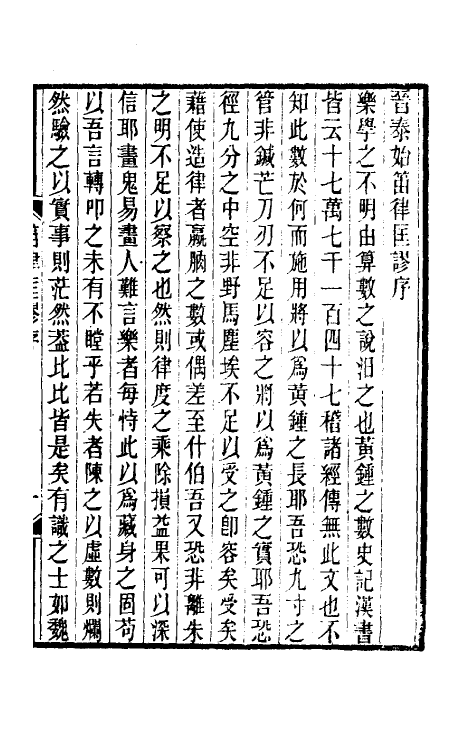 晉泰始笛律匡謬序
樂學之不明由算數之說汨之也黃鍾之數史記漢書
皆云十七萬七千一百四十七稽諸經傳無此文也不
知此數於何而施用將以爲黃鍾之長耶吾恐九寸之
管非鍼芒刀刃不足以容之將以爲黃鍾之實耶吾恐
徑九分之中空非野馬塵埃不足以受之卽容矣受矣
藉使造律者贏朒之數或偶差至什伯吾又恐非離朱
之明不足以察之也然則律度之乘除損益果可以深
信耶畫鬼易畫人難言樂者每恃此以爲藏身之固苟
以吾言轉叩之未有不瞠乎若失者陳之以虛數則爛
然驗之以實事則茫然蓋比比皆是矣有識之士如魏
笛律匡謬序
一